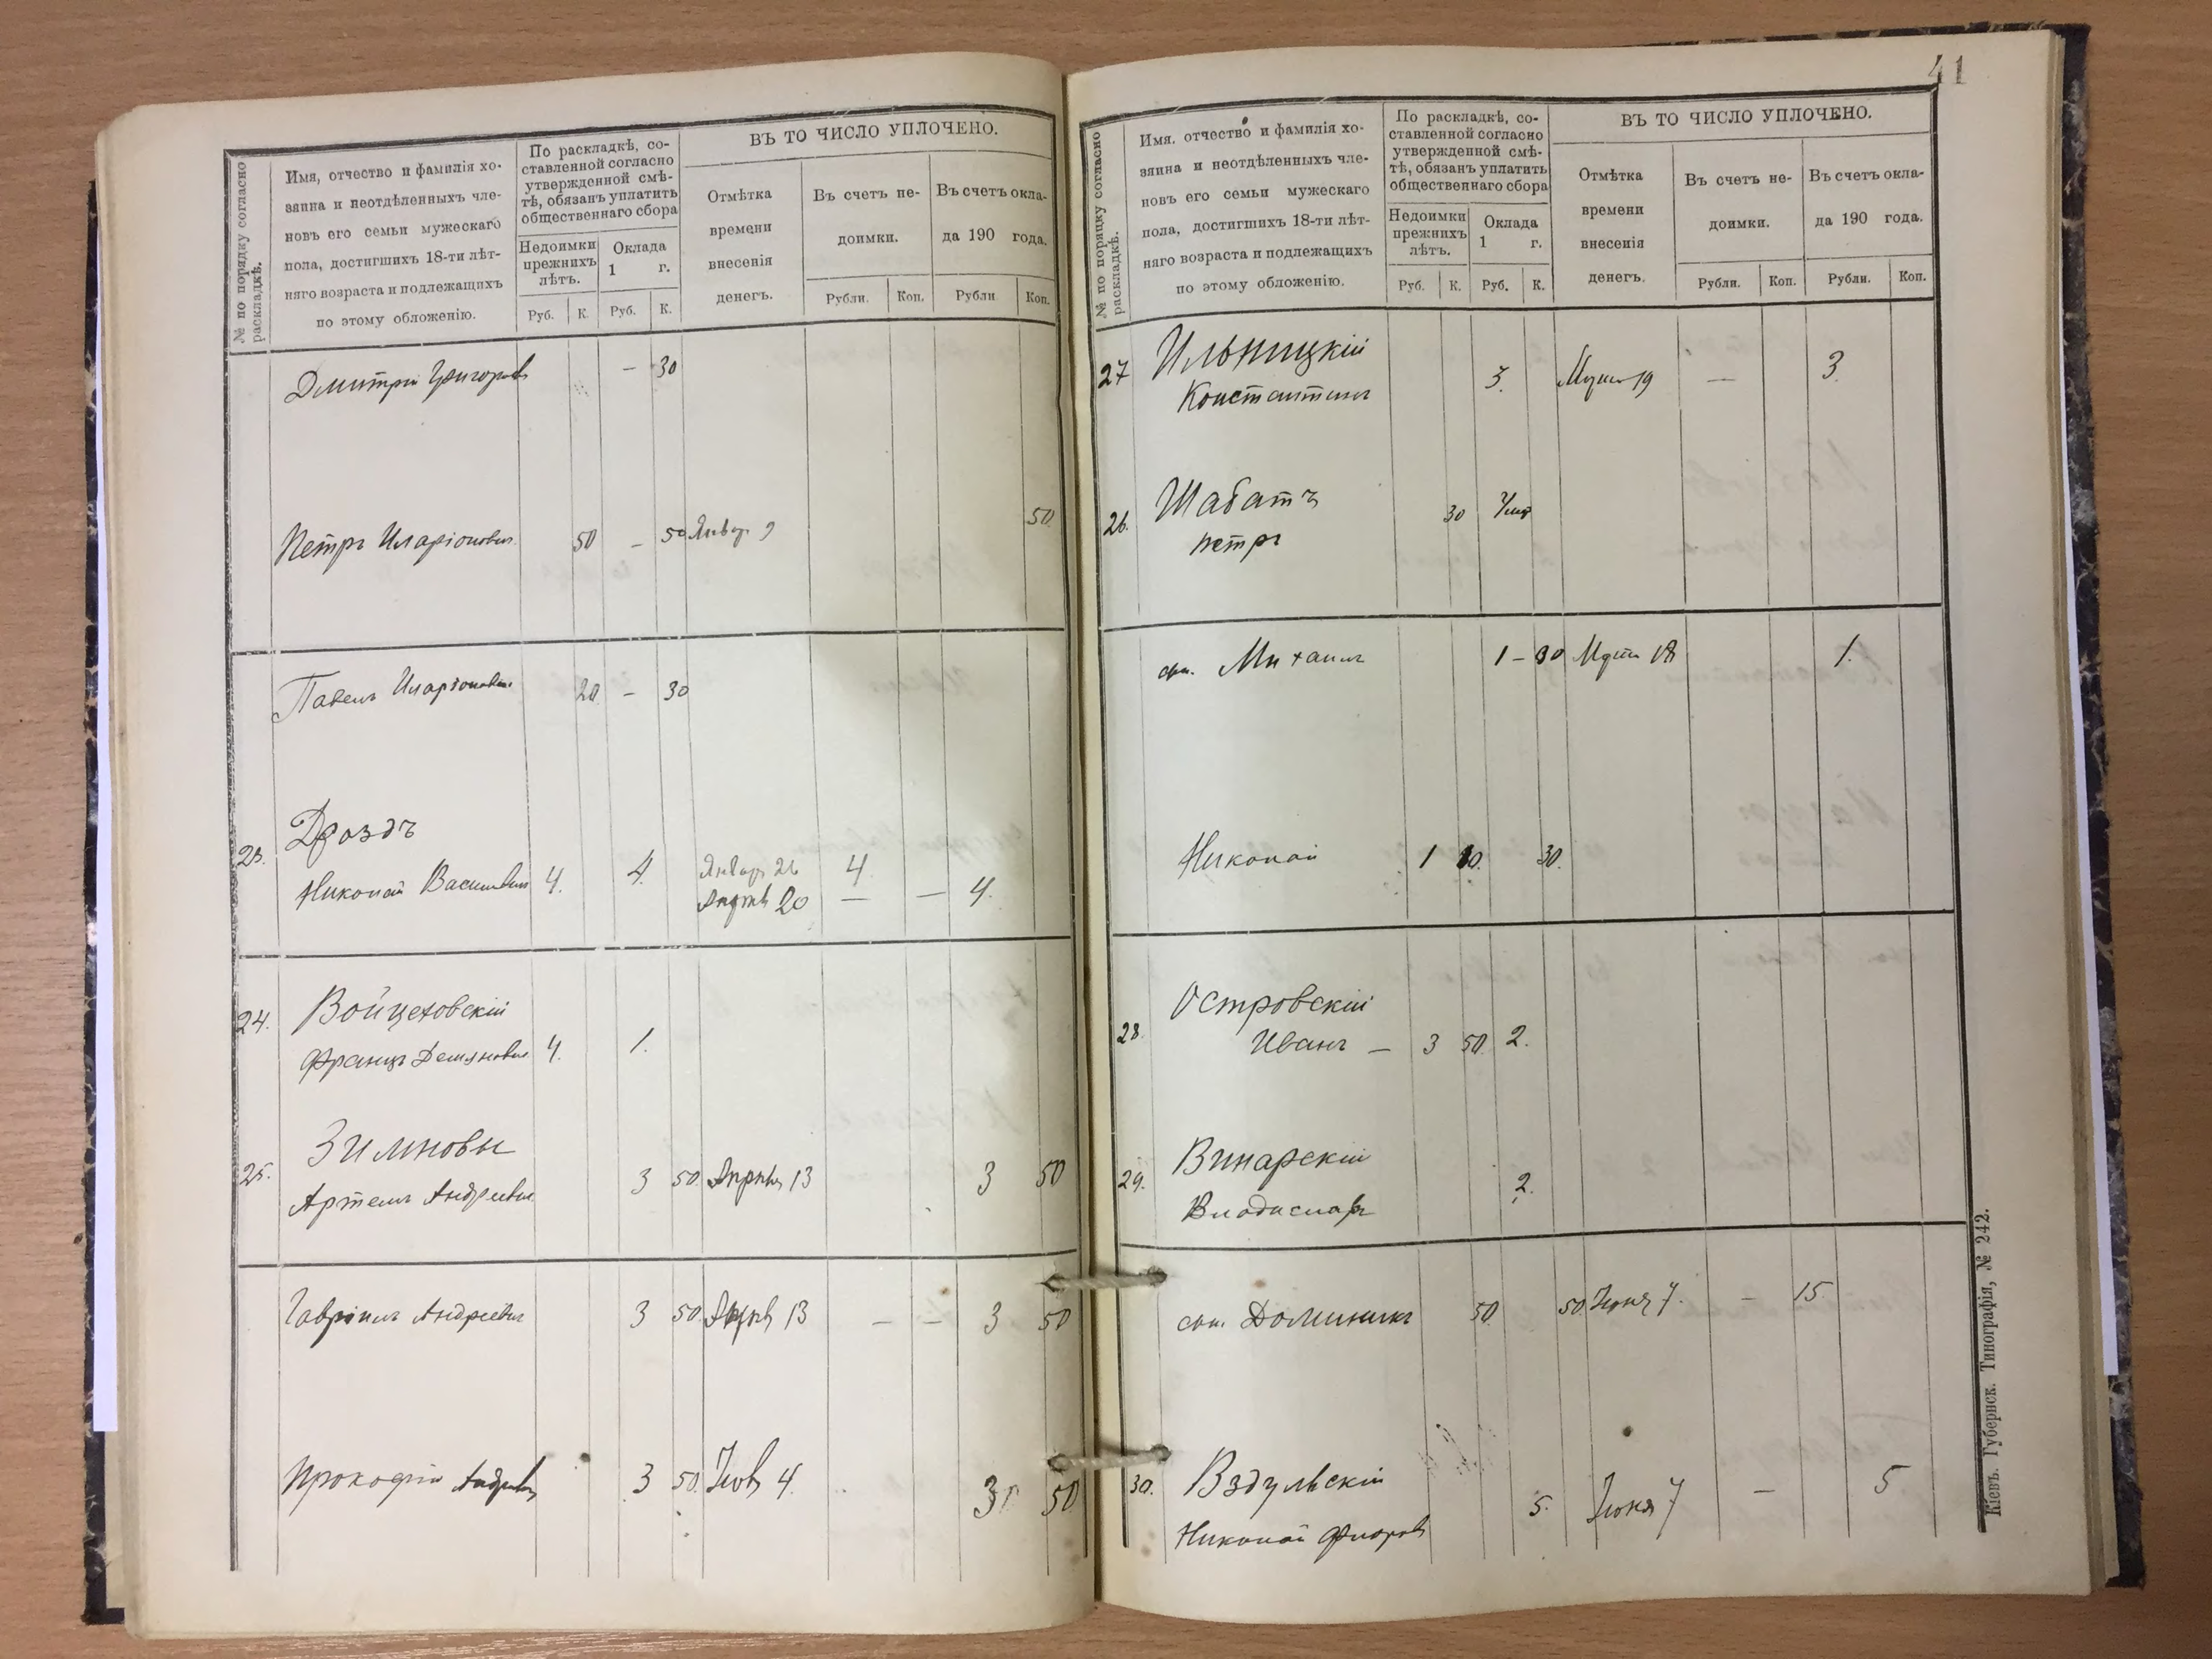 № по порядку согласно раскладкѣ.
Имя, отчество и фамилія хо-
зяина и неотдѣленныхъ чле-
новъ его семьи мужескаго
пола, достигшихъ 18-ти лѣт-
няго возраста и подлежащихъ
по этому обложенію.
По раскладкѣ, со-
ставленной согласно
утвержденной смѣ-
тѣ, обязанъ уплатить
общественнаго сбора
Недоимки
прежнихъ
лѣтъ.
Оклада
1 г.
Руб. К. Руб. К.
ВЪ ТО ЧИСЛО УПЛОЧЕНО.
Отмѣтка
времени
внесенія
денегъ.
Въ счетъ не-
доимки.
Въ счетъ окла-
да 190 года.
Рубли. Коп. Рубли Коп.
Дмитрій Григорьевъ — 30
Петръ Иларіоновичъ 50 — 50 Январ. 9 50
Павелъ Иларіоновичъ 20 — 30
23. Дроздъ
Николай Васильевичъ 4. 4. Январ. 26 4
Апрѣля 20 — — 4.
24. Войцеховскій
Францъ Демяновичъ 4. 1.
25. Зимновы
Артемъ Андреевичъ 3 50 Апрѣля 13 3 50
Гавріилъ Андреевичъ 3 50 Апрѣля 13 — — 3 50
Прокофій Андреевичъ 3 50 4. 3 50
41
№ по порядку согласно раскладкѣ.
Имя. отчество и фамилія хо-
зяина и неотдѣленныхъ чле-
новъ его семьи мужескаго
пола, достигшихъ 18-ти лѣт-
няго возраста и подлежащихъ
по этому обложенію.
По раскладкѣ, со-
ставленной согласно
утвержденной смѣ-
тѣ, обязанъ уплатить
общественнаго сбора
Недоимки
прежнихъ
лѣтъ.
Оклада
1 г.
Руб. К. Руб. К.
ВЪ ТО ЧИСЛО УПЛОЧЕНО.
Отмѣтка
времени
внесенія
денегъ.
Въ счетъ не-
доимки.
Въ счетъ окла-
да 190 года.
Рубли. Коп. Рубли. Коп.
27 Ильницкій
Константинъ 3. 19 — 3.
26. Шабатъ
Петръ 30
Михаилъ 1 — 30 18 1.
Николай 1 30.
28. Островскій
Иванъ — 3 50 2.
29. Винарскій
Владиславъ 2.
Доминикъ 50 50 Іюня 7. — 15
30. Вздульскій
Николай 5. Іюня 7 — 5
Кіевъ. Губернск. Типографія, № 242.